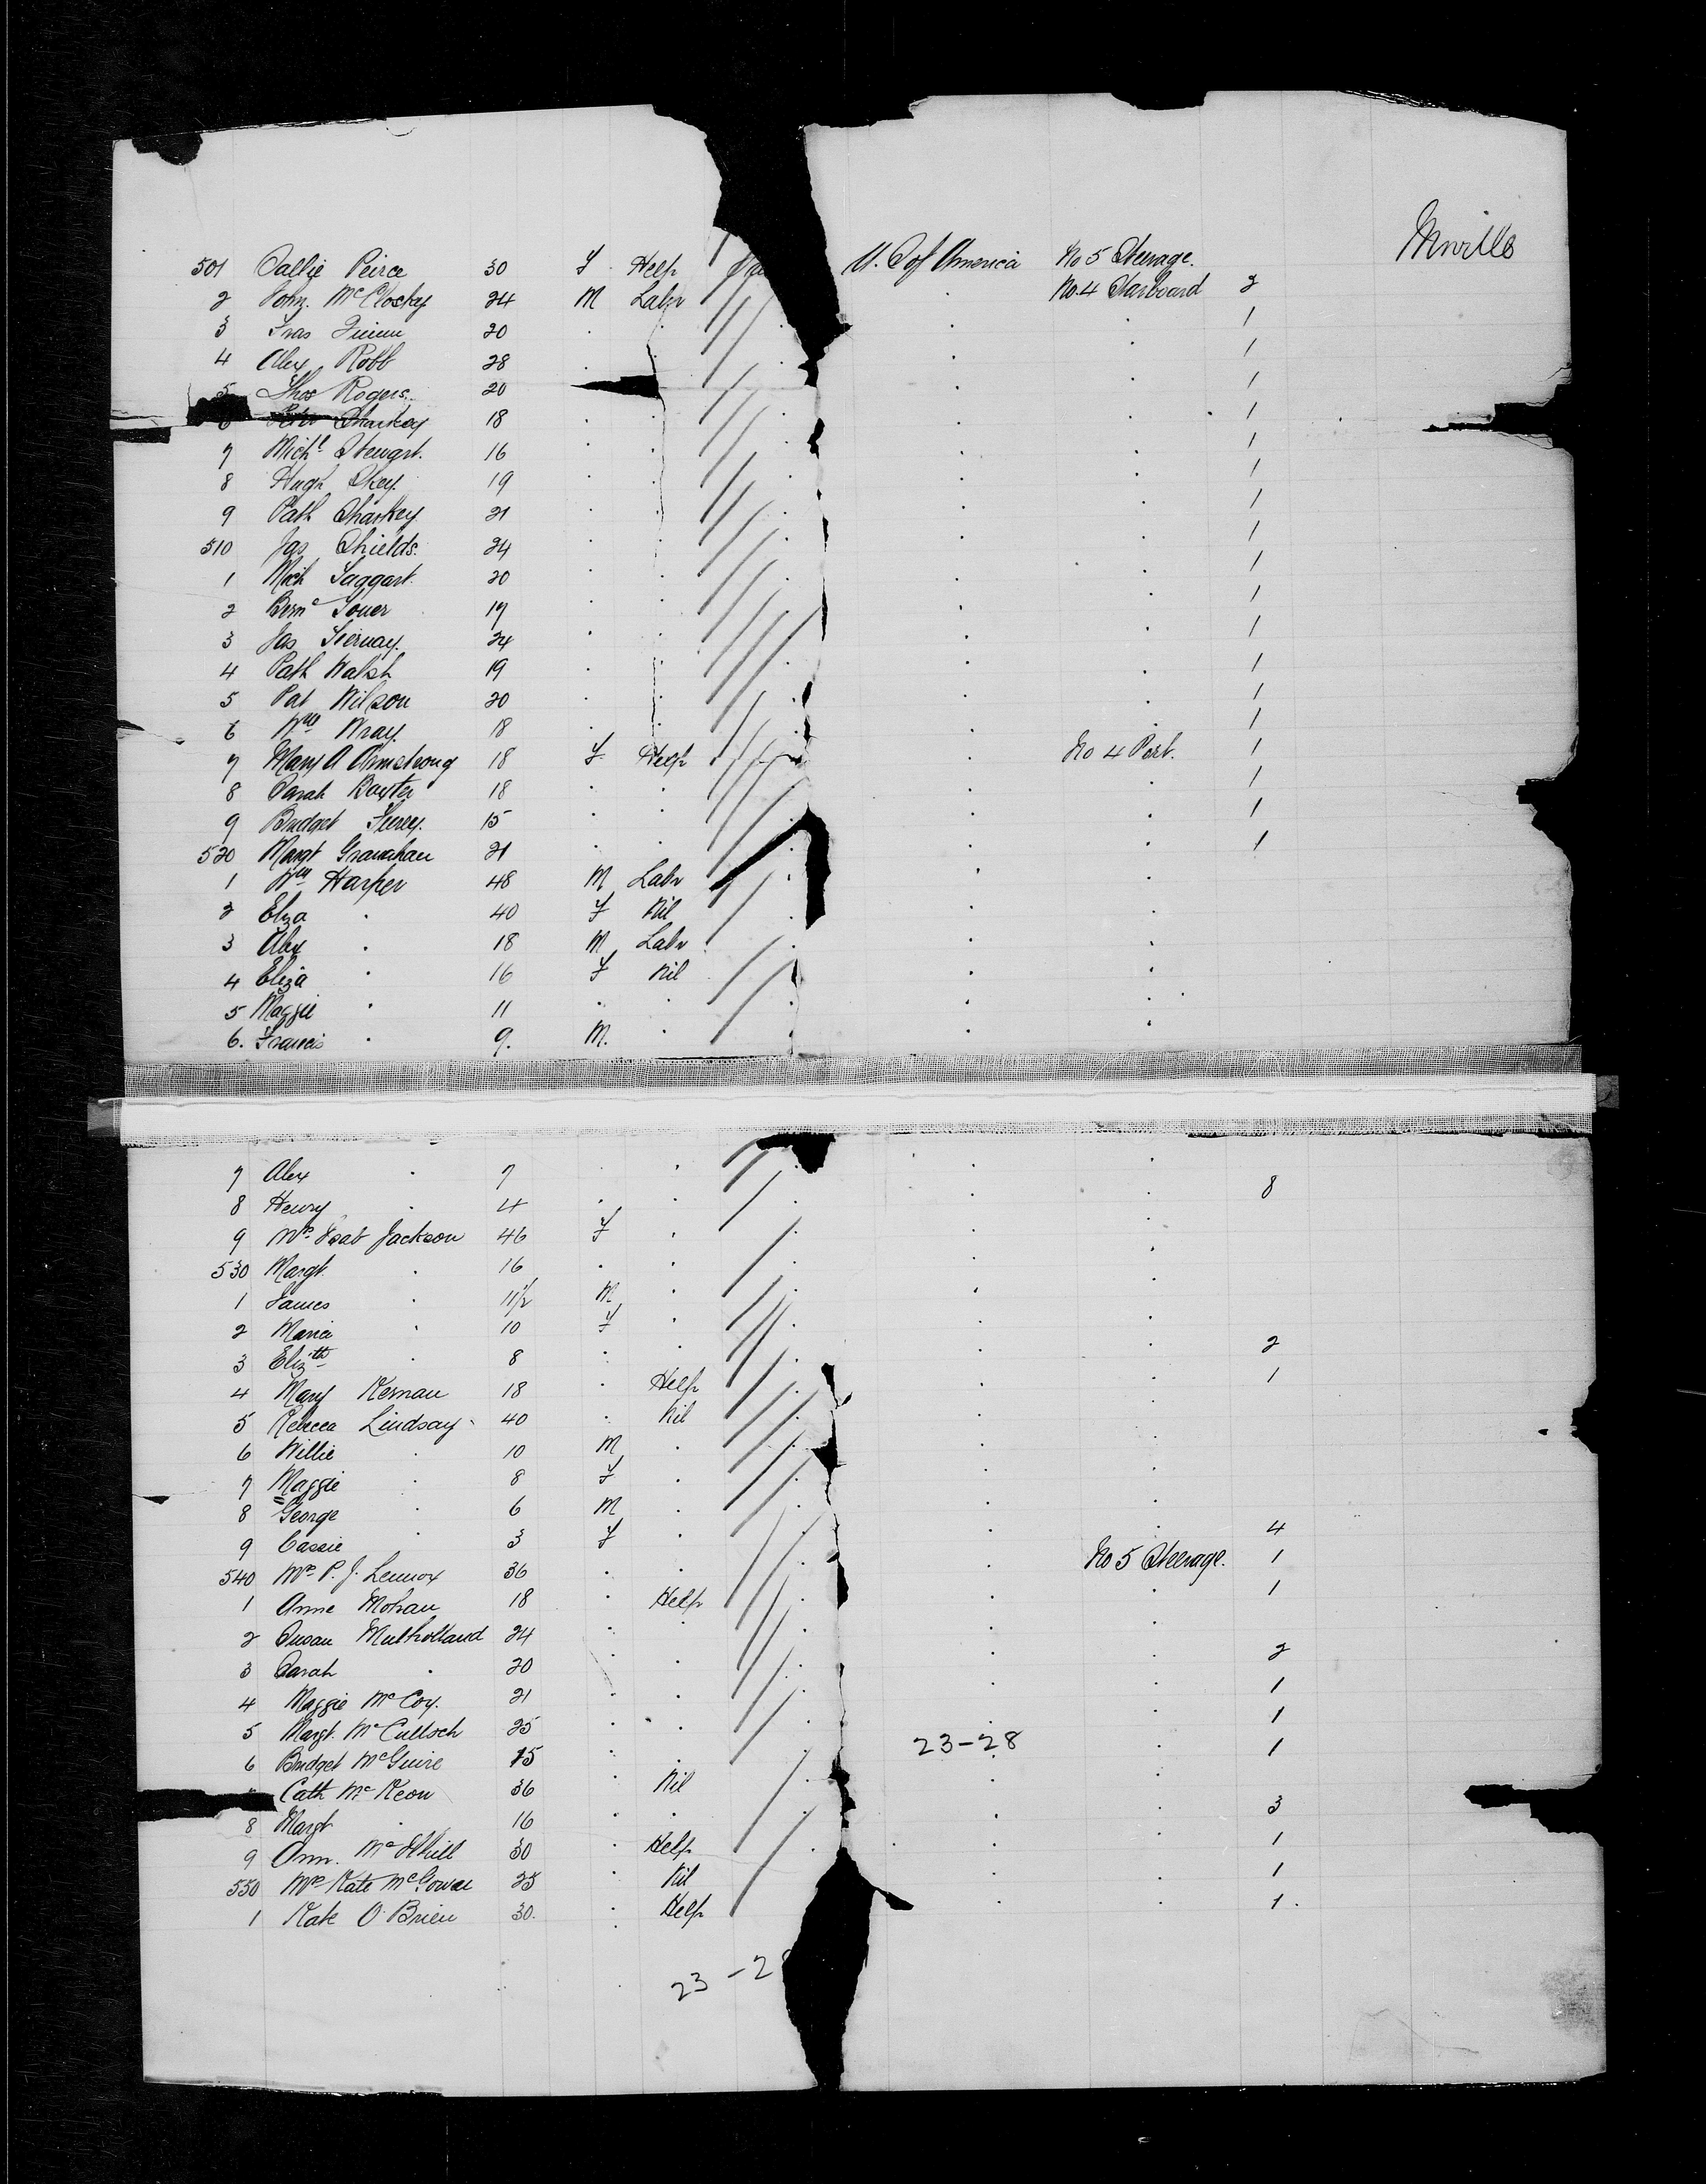 Mville
501 Sallie Peirce 30 F Help U. S of America No 5 Steerage.
2 John McClosky 24 M Labr . No. 4 Starboard 2
3 Fras Quinn 20 . . . . 1
4 Alex Robb 28 . . . . 1
5 Thos Rogers. 20 . . 1
6 Peter Sharkey 18 . . . . 1
7 Michl Stewart. 16 . . . . 1
8 Hugh Skey. 19 . . . . 1
9 Patk Sharkey 21 . . . . 1
510 Jas Shields. 24 . . . . 1
1 Mich Taggart. 20 . . . . 1
2 Bernd 19 . . . . 1
3 Jas Tiernay. 24 . . . . 1
4 Patk Walsh 19 . . . . 1
5 Pat Wilson 20 . . . . 1
6 Wm Wray. 18 . . . . 1
7 Mary A Armstrong 18 F Help . No 4 Port. 1
8 Sarah Baxter 18 . . . . 1
9 Bridget 15 . . . . 1
520 Margt Granahan 21 . . . . 1
1 Wm Harper 48 M Labr . .
2 Eliza . 40 F Nil . .
3 Alex . 18 M Labr . .
4 Eliza . 16 F Nil . .
5 Maggie . 11 . . . .
6. Francis . 9. M. . . .
7 Alex . 7 . . . .
8 Henry . 4 . . . . 8
9 Mrs Isab Jackson 46 F . . .
530 Margt. . 16 . . . .
1 James . 11 1/2 M . . .
2 Maria . 10 F . . .
3 Elizth . 8 . . . . 2
4 Mary Kernan 18 . Help . . 1
5 Rebecca Lindsay 40 . Nil . .
6 Willie . 10 M . . .
7 Maggie . 8 F . . .
8 George . 6 M . . .
9 Cassie . 3 F . . . 4
540 Mrs P. J. Lennox 36 . . . No 5 Steerage. 1
1 Anne Mohan 18 . Help . . 1
2 Susan Mulholland 24 . . . .
3 Sarah . 20 . . . . 2
4 Maggie McCoy. 21 . . . . 1
5 Margt. McCulloch 25 . . . . 1
6 Bridget McGuire 15 . . 23-28 . 1
Cath McKeon 36 . Nil . .
8 Margt . 16 . . . . 3
9 Ann. 30 . Help . . 1
550 Mrs Kate McGowan 25 . Nil . . 1
1 Kate O'Brien 30. . Help . . 1.
23-2